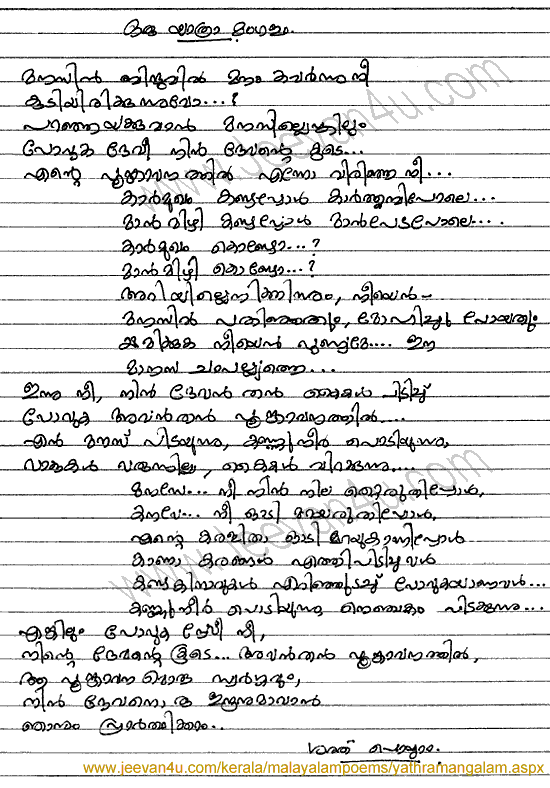 ഒരു യാത്രാ മംഗളം.
മനസിൻ ബിന്ദുവിൽ മനം കവർന്നു നീ
കുടിയിരിക്കുന്നുവോ...?
പറഞ്ഞയക്കുവാൻ മനസില്ലെങ്കിലും
പോവുക ദേവീ നിൻ ദേവന്റെ കൂടെ...
എന്റെ പൂങ്കാവനത്തിൽ എന്നോ വിരിഞ്ഞ നീ...
കാർമുഖം കണ്ടപ്പോൾ കാർത്തുമ്പിപോലെ...
മാൻവിഴി കണ്ടപ്പോൾ മാൻപേടപോലെ....
കാർമുഖം കൊണ്ടോ...?
മാൻമിഴി കൊണ്ടോ...?
അറിയില്ലെനിക്കിന്നും, നീയെൻ-
മനസിൽ പതിഞ്ഞതും, മോഹിച്ചു പോയതും
ക്ഷമിക്കുക നീയെൻ പുണ്യമേ.... ഈ
മാനസ ചാപല്യത്തെ...
ഇന്നു നീ, നിൻ ദേവൻ തൻ കൈകൾ പിടിച്ച്
പോവുക അവൻതൻ പൂങ്കാവനത്തിൽ....
എൻ മനസ് പിടയുന്നു, കണ്ണുനീർ പൊടിയുന്നു,
വാക്കുകൾ വരുന്നില്ല, കൈകൾ വിറക്കുന്നു....
മനസേ... നീ നിൻ നില തെറ്റരുതിപ്പോൾ,
കനവേ... നീ ഓടി മറയരുതിപ്പോൾ,
എന്റെ കരളിതാ ഓടി മറവുകാണിപ്പോൾ
കാണാ കരങ്ങൾ എത്തിപിടിച്ചവൾ
കണ്ടകിനാവുകൾ എറിഞ്ഞുടച്ച് പോവുകയാണവൾ...
കണ്ണുനീർ പൊടിയുന്നു നെഞ്ചകം പിടക്കുന്നു...
എങ്കിലും പോവുക ദേവീ നീ,
നിന്റെ ദേവന്റെ കൂടെ... അവൻതൻ പൂങ്കാവനത്തിൽ,
ആ പൂങ്കാവനമൊരു സ്വർഗ്ഗവും,
നിൻ ദേവനൊരു ഇന്ദ്രനുമാവാൻ
ഞാനും പ്രാർത്ഥിക്കാം..
ശരത്
www.jeevan4u.com/kerala/malayalampoems/yathramangalam.aspx
www.jeevan4u.com
www.jeevan4u.com